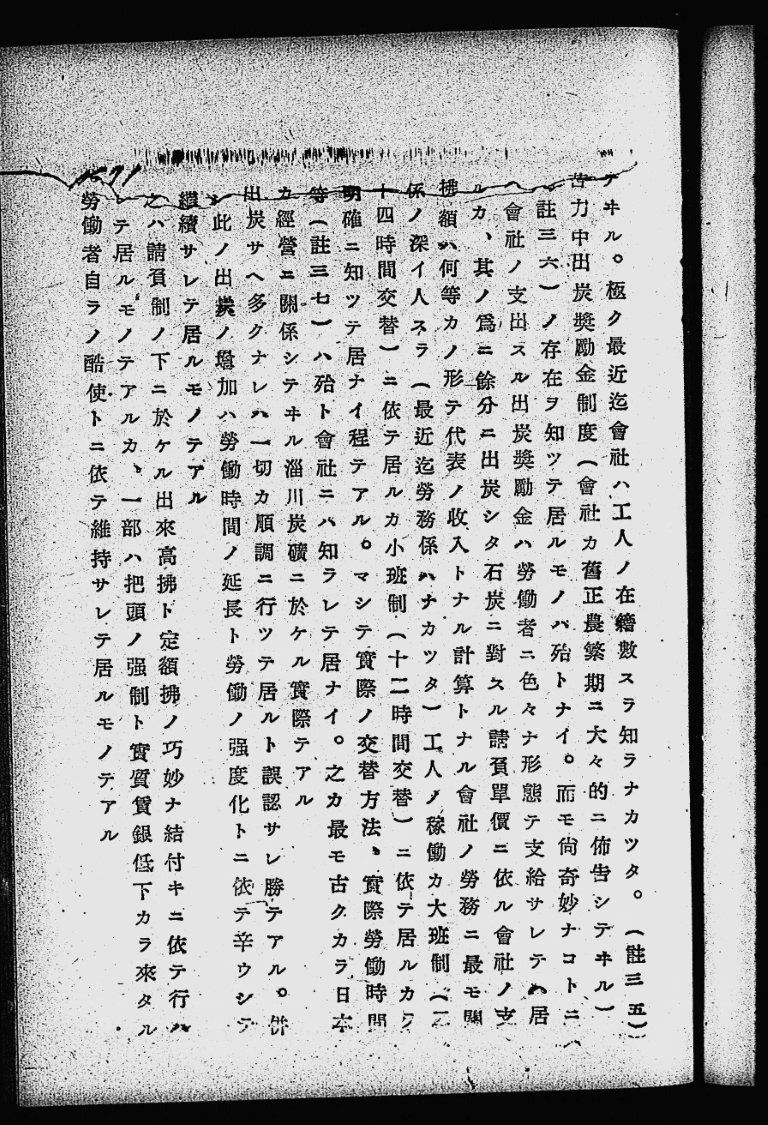 テヰル。極ク最近迄會社ハ工人ノ在籍數スラ知ラナカツタ。(註三五)
苦力中出炭奬勵金制度(會社カ舊正農繁期ニ大々的ニ佈告シテヰル)
(註三六)ノ存在ヲ知ツテ居ルモノハ殆トナイ。而モ尙奇妙ナコトニ
ハ會社ノ支出スル出炭奬勵金ハ勞働者ニ色々ナ形態テ支給サレテハ居
ルカ、其ノ爲ニ餘分ニ出炭シタ石炭ニ對スル請負單價ニ依ル會社ノ支
拂額ハ何等カノ形テ代表ノ收入トナル計算トナル會社ノ勞務ニ最モ關
係ノ深イ人スラ(最近迄勞務係ハナカツタ)工人ノ稼働カ大班制(二
十四時間交替)ニ依テ居ルカ小班制(十二時間交替)ニ依テ居ルカヲ
明確ニ知ツテ居ナイ程テアル。マシテ實際ノ交替方法、實際勞働時間
等(註三七)ハ殆ト會社ニハ知ラレテ居ナイ。之カ最モ古クカラ日本
カ經營ニ關係シテヰル淄川炭礦ニ於ケル實際テアル
出炭サヘ多クナレハ一切カ順調ニ行ツテ居ルト誤認サレ勝テアル。併
シ此ノ出炭ノ增加ハ勞働時間ノ延長ト勞働ノ强度化トニ依テ辛ウシテ
繼續サレテ居ルモノテアル
之ハ請負制ノ下ニ於ケル出來高拂ト定額拂ノ巧妙ナ結付キニ依テ行ハ
レテ居ルモノテアルカ、一部ハ把頭ノ强制ト實質賃銀低下カラ來タル
勞働者自ラノ酷使トニ依テ維持サレテ居ルモノテアル